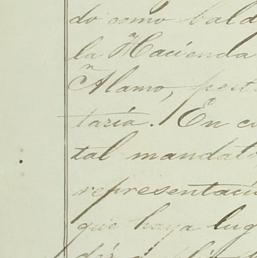 do como bald
la Hacienda
Alamo, pert
taria. En c
tal mandat
representaci
que haya lug